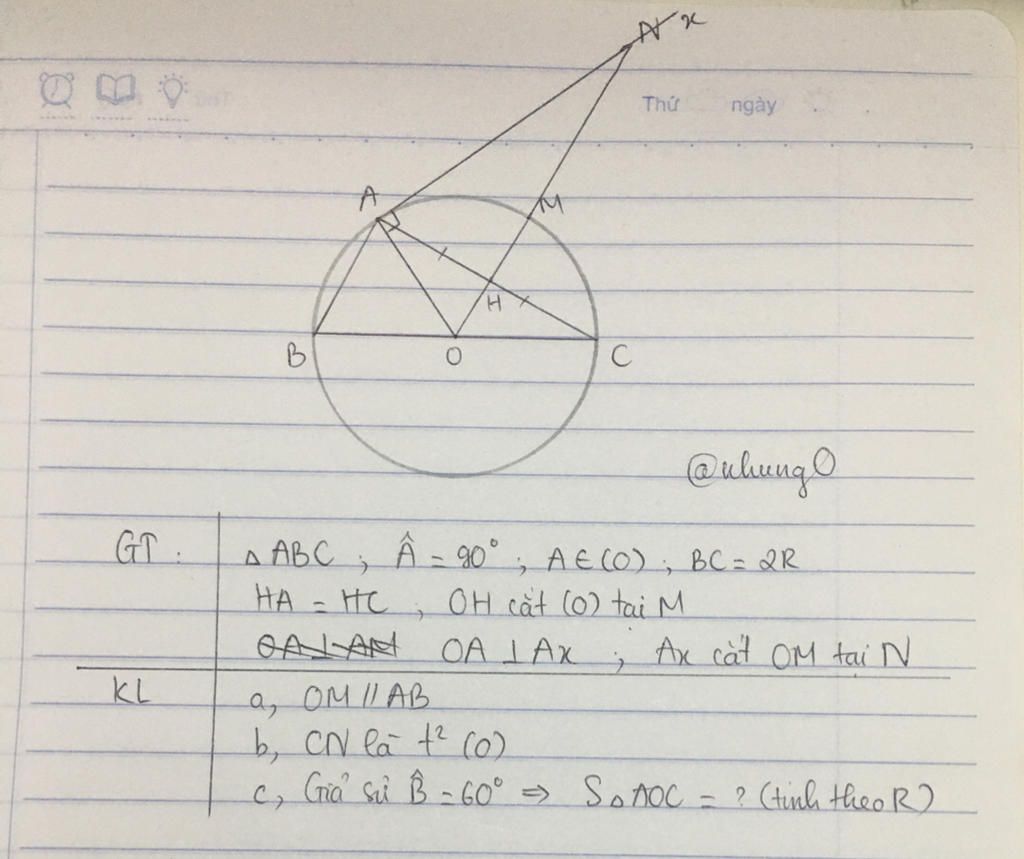 N x
Thứ ngày
A
M
H
B
O
C
@nhungO
GT :
△ ABC ; Â = 90° ; A ∈ (O) ; BC = 2R
HA = HC ; OH cắt (O) tại M
OA ⊥ Ax ; Ax cắt OM tại N
KL
a, OM // AB
b, CN là t² (O)
c, Giả sử B̂ = 60° ⇒ S△AOC = ? (tính theo R)